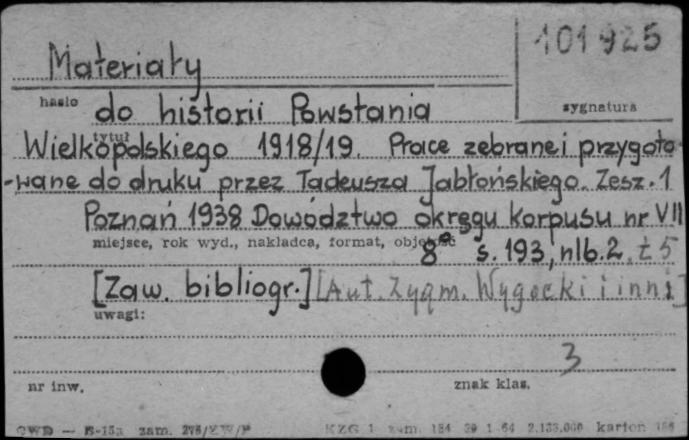 101925
Materiały
hasło
sygnatura
do historii Powstania
tytuł
Wielkopolskiego 1918/19. Prace zebrane i przygoto-
-wane do druku przez Tadeusza Jabłońskiego. Zesz. 1
Poznań 1938 Dowództwo okręgu korpusu nr VII
miejsce, rok wyd., nakładca, format, objętość
8° s. 193, nlb. 2. ż 5
[Zaw. bibliogr.] [Aut. Zygm. Wygocki i inni]
uwagi:
3
nr inw.
znak klas.
CWD — zam. KZG 1 zam. 184 1 64 2.133.000 karton